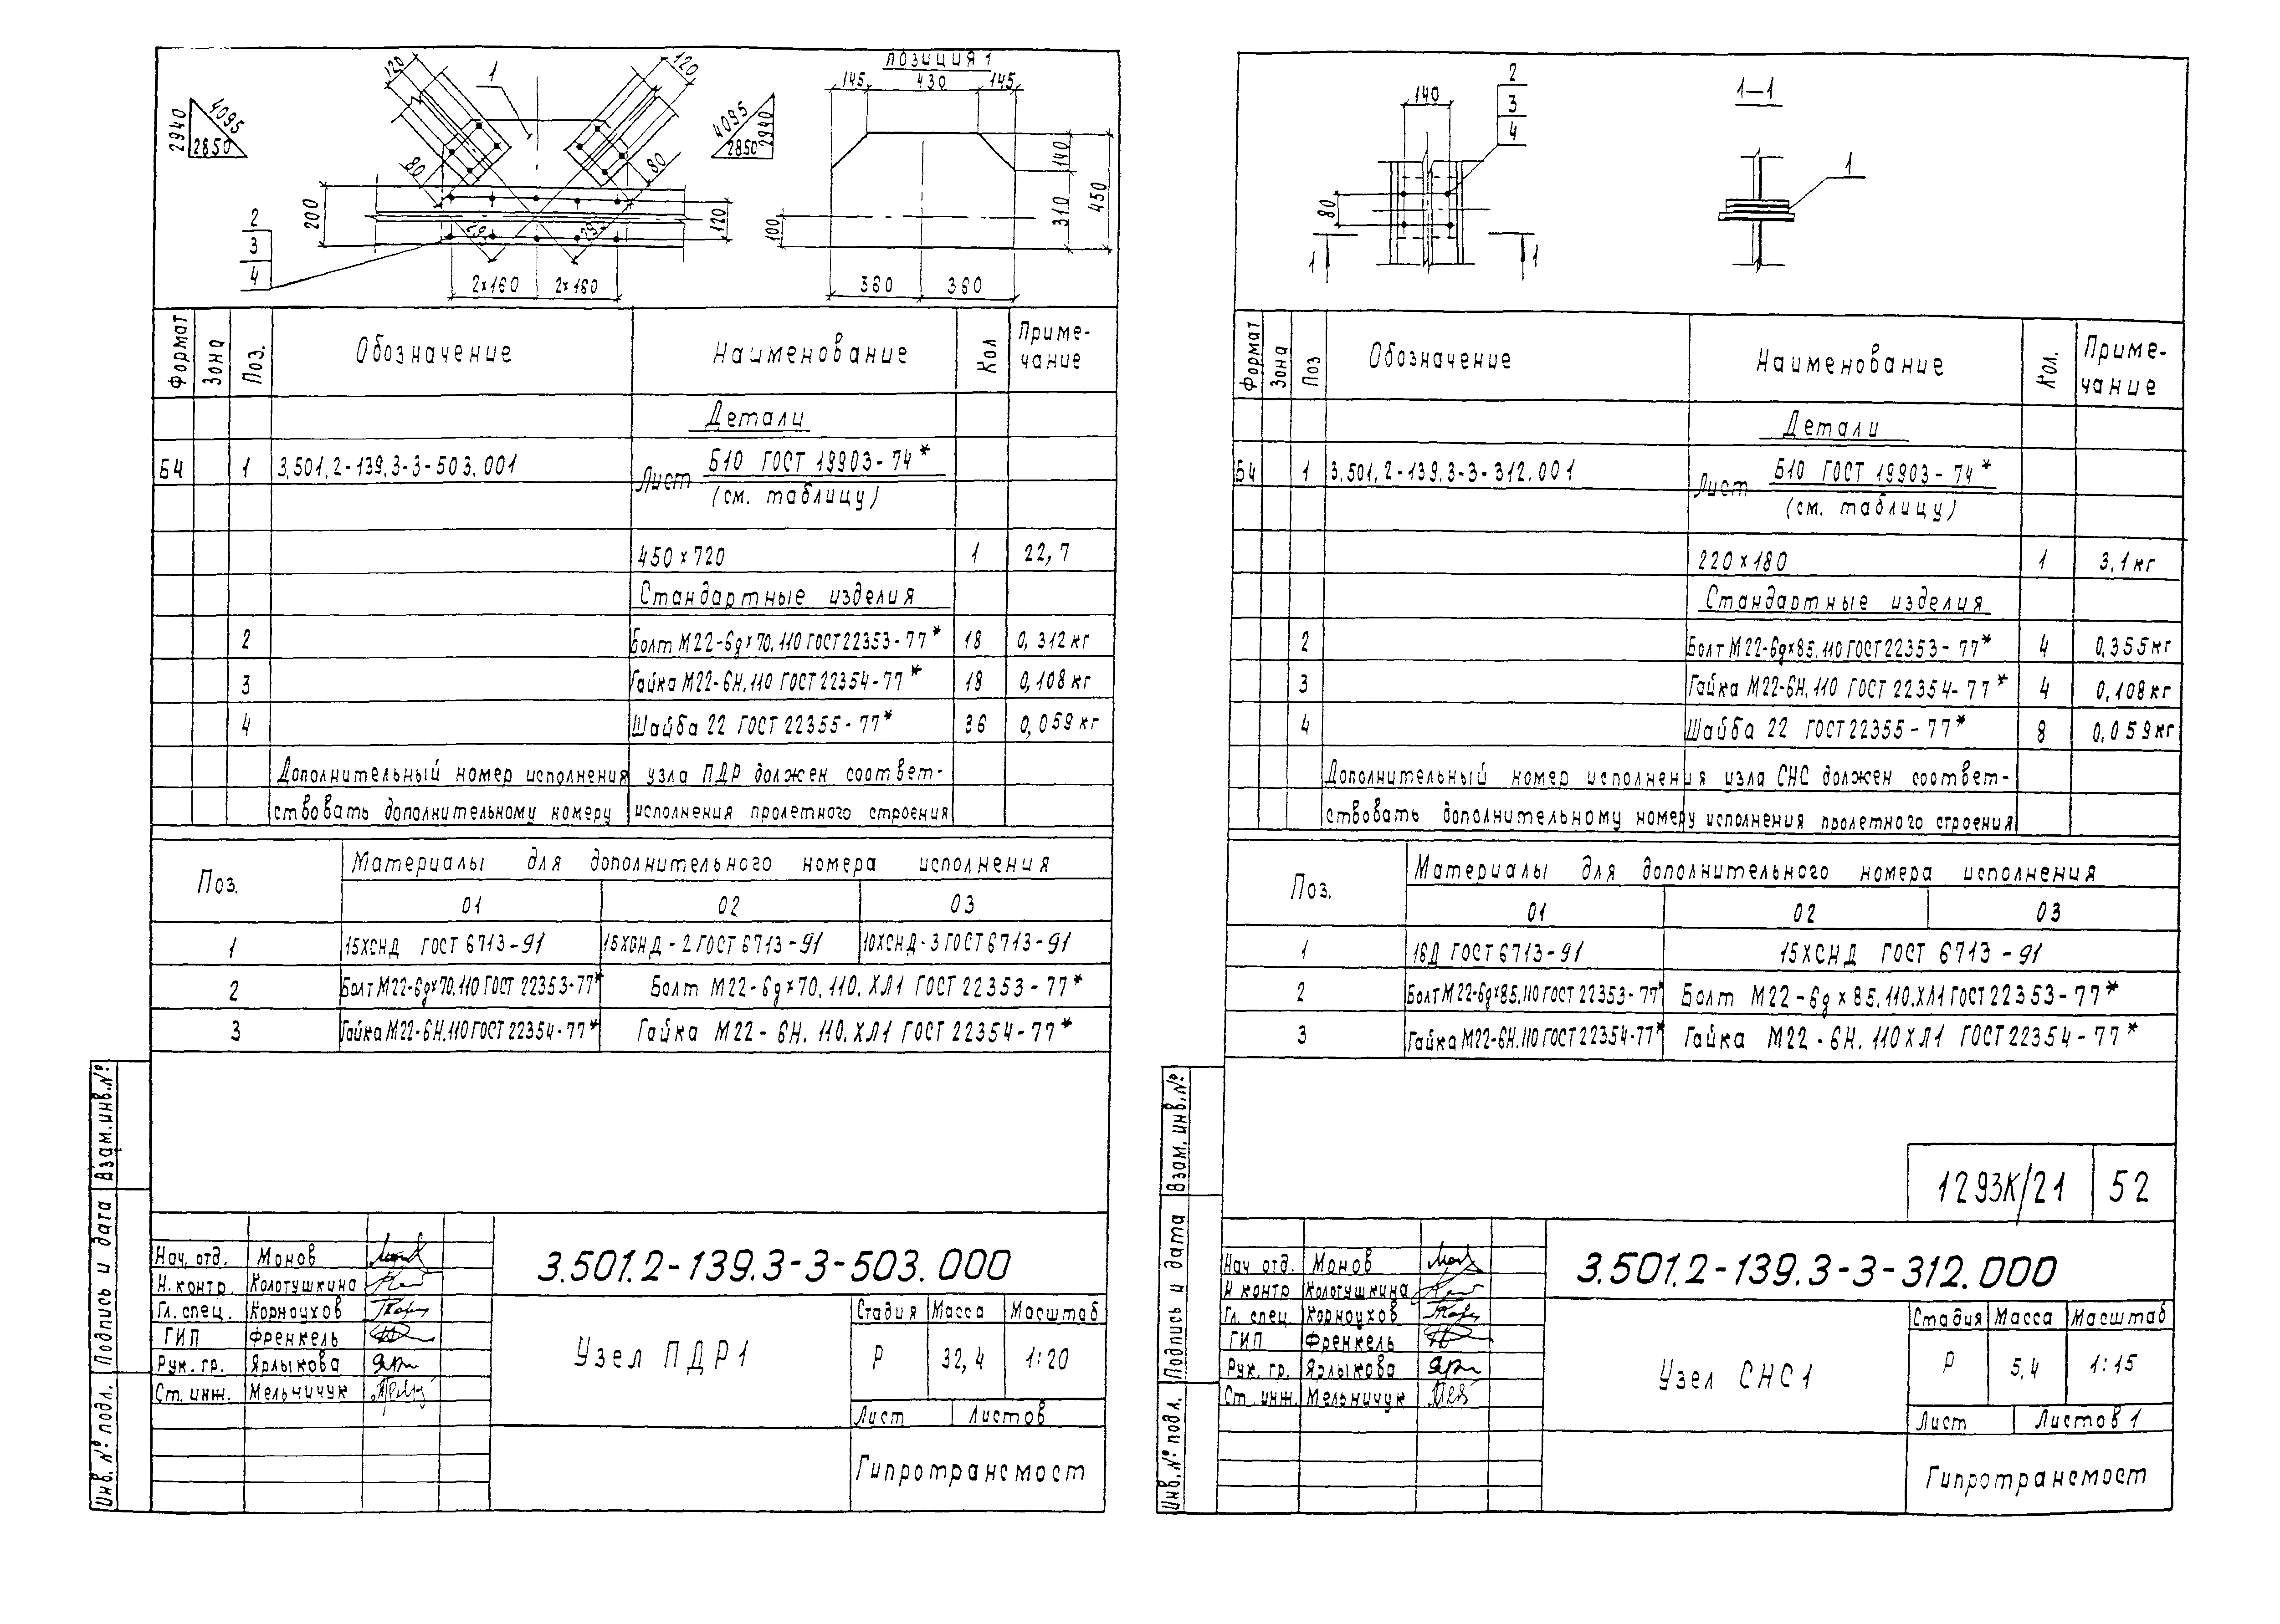 ПОЗИЦИЯ 1
120
1
120
145
430
145
2940
4095
2850
4095
2940
2850
80
80
140
310
450
200
120
100
295
295
2
3
4
2×160
2×160
360
360
Формат
Зона
Поз.
Обозначение
Наименование
Кол
Приме-
чание
Детали
Б4 1 3.501.2-139.3-3-503.001 Лист Б10 ГОСТ 19903-74*
(см. таблицу)
450×720 1 22,7
Стандартные изделия
2 Болт М22-6g×70.110 ГОСТ 22353-77* 18 0,312кг
3 Гайка М22-6Н.110 ГОСТ 22354-77* 18 0,108кг
4 Шайба 22 ГОСТ 22355-77* 36 0,059кг
Дополнительный номер исполнения узла ПДР должен соответ-
ствовать дополнительному номеру исполнения пролетного строения
Поз.
Материалы для дополнительного номера исполнения
01 02 03
1 15ХСНД ГОСТ 6713-91 15ХСНД-2 ГОСТ 6713-91 10ХСНД-3 ГОСТ 6713-91
2 Болт М22-6g×70.110 ГОСТ 22353-77* Болт М22-6g×70.110.ХЛ1 ГОСТ 22353-77*
3 Гайка М22-6Н.110 ГОСТ 22354-77* Гайка М22-6Н.110.ХЛ1 ГОСТ 22354-77*
Взам.инв.№
Подпись и дата
Инв.№ подл.
Нач. отд. Монов
Н.контр. Колотушкина
Гл. спец. Корноухов
ГИП Френкель
Рук. гр. Ярлыкова
Ст. инж. Мельничук
3.501.2-139.3-3-503.000
Узел ПДР1
Стадия Масса Масштаб
Р 32,4 1:20
Лист Листов
Гипротрансмост
140
2
3
4
1-1
1
80
1
1
Формат
Зона
Поз
Обозначение
Наименование
Кол.
Приме-
чание
Детали
Б4 1 3.501.2-139.3-3-312.001 Лист Б10 ГОСТ 19903-74*
(см. таблицу)
220×180 1 3,1кг
Стандартные изделия
2 Болт М22-6g×85.110 ГОСТ 22353-77* 4 0,355кг
3 Гайка М22-6Н.110 ГОСТ 22354-77* 4 0,108кг
4 Шайба 22 ГОСТ 22355-77* 8 0,059кг
Дополнительный номер исполнения узла СНС должен соответ-
ствовать дополнительному номеру исполнения пролетного строения
Поз.
Материалы для дополнительного номера исполнения
01 02 03
1 16Д ГОСТ 6713-91 15ХСНД ГОСТ 6713-91
2 Болт М22-6g×85.110 ГОСТ 22353-77* Болт М22-6g×85.110.ХЛ1 ГОСТ 22353-77*
3 Гайка М22-6Н.110 ГОСТ 22354-77* Гайка М22-6Н.110ХЛ1 ГОСТ 22354-77*
1293К/21 52
Взам.инв.№
Подпись и дата
Инв.№ подл.
Нач. отд. Монов
Н контр Колотушкина
Гл. спец. Корноухов
ГИП Френкель
Рук. гр. Ярлыкова
Ст. инж. Мельничук
3.501.2-139.3-3-312.000
Узел СНС1
Стадия Масса Масштаб
Р 5,4 1:15
Лист Листов 1
Гипротрансмост